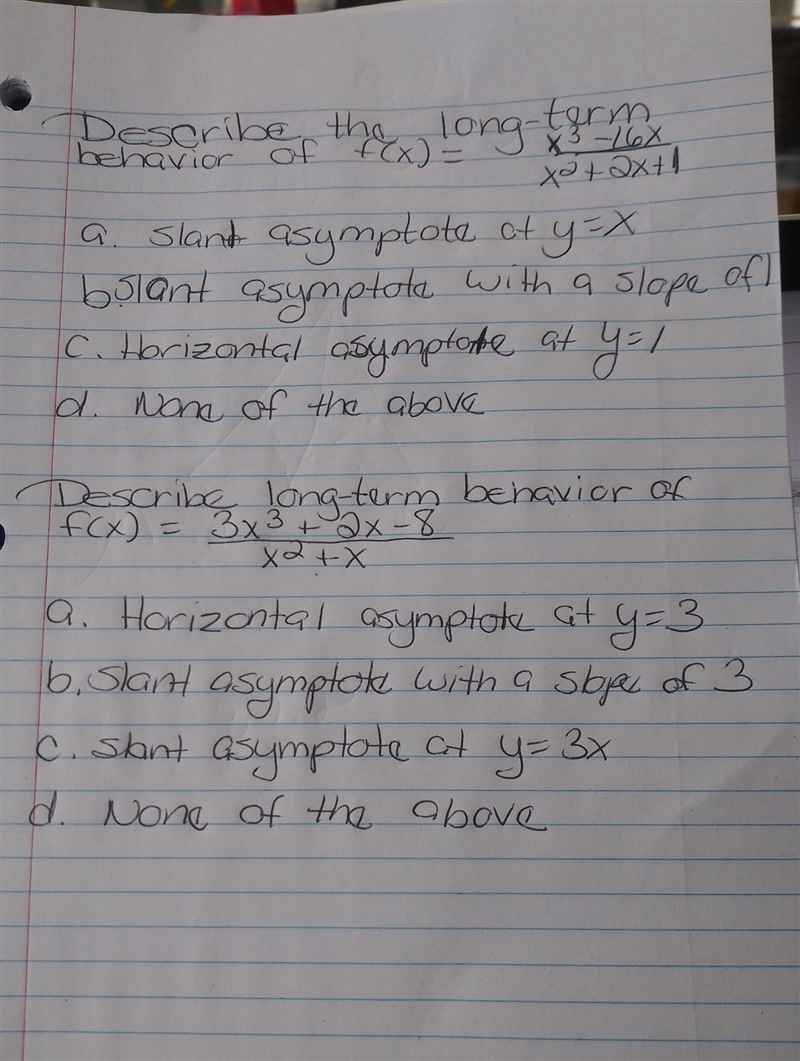 Describe the long-term
behavior of f(x) = x³ - 16x / x² + 2x + 1
a. Slant asymptote at y=x
b. Slant asymptote with a slope of 1
c. Horizontal asymptote at y=1
d. None of the above
Describe long-term behavior of
f(x) = 3x³ + 2x - 8 / x² + x
a. Horizontal asymptote at y=3
b. Slant asymptote with a slope of 3
c. Slant asymptote at y=3x
d. None of the above